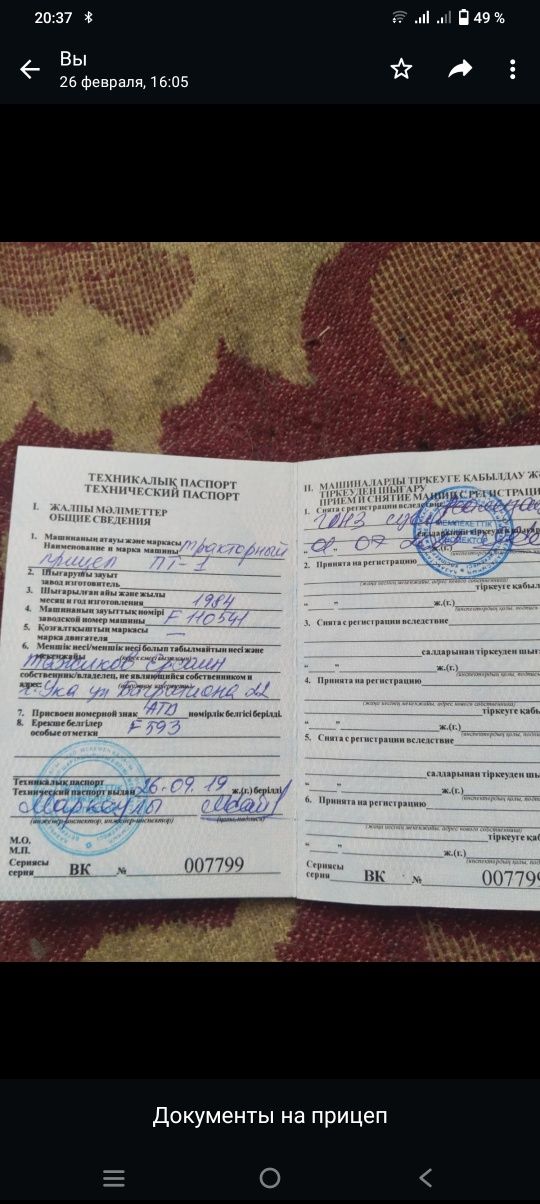 20:37
49 %
Вы
26 февраля, 16:05
ТЕХНИКАЛЫҚ ПАСПОРТ
ТЕХНИЧЕСКИЙ ПАСПОРТ
I. ЖАЛПЫ МӘЛІМЕТТЕР
ОБЩИЕ СВЕДЕНИЯ
1. Машинаның атауы және маркасы
Наименование и марка машины тракторный
прицеп ПТ-1
2. Шығарушы зауыт
завод изготовитель
3. Шығарылған айы және жылы
месяц и год изготовления 1984
4. Машинаның зауыттық номірі
заводской номер машины F 110541
5. Қозғалтқыштың маркасы
марка двигателя —
6. Меншік иесі/меншік иесі болып табылмайтын иесі және
мекенжайы
собственник/владелец, не являющийся собственником и
адрес
22
7. Присвоен номерной знак АТD нөмірлік белгісі берілді.
8. Ерекше белгілер
особые отметки F 593
Техникалық паспорт
Технический паспорт выдан 26.09.19 ж.(г.) берілді
(инженер-инспектор, инженер-инспектор)
М.О.
М.П.
Сериясы
серия ВК № 007799
II. МАШИНАЛАРДЫ ТІРКЕУГЕ ҚАБЫЛДАУ Ж
ТІРКЕУДЕН ШЫҒАРУ
ПРИЕМ И СНЯТИЕ МАШИН С РЕГИСТРАЦИ
1. Снята с регистрации вследствие
07
2. Принята на регистрацию
тіркеуге қабыл
" " ж.(г.)
3. Снята с регистрации вследствие
салдарынан тіркеуден шығ
" " ж.(г.)
4. Принята на регистрацию
тіркеуге қаб
" " ж.(г.)
5. Снята с регистрации вследствие
салдарынан тіркеуден шы
" " ж.(г.)
6. Принята на регистрацию
тіркеуге қаб
" " ж.(г.)
Сериясы
серия ВК № 00779
Документы на прицеп